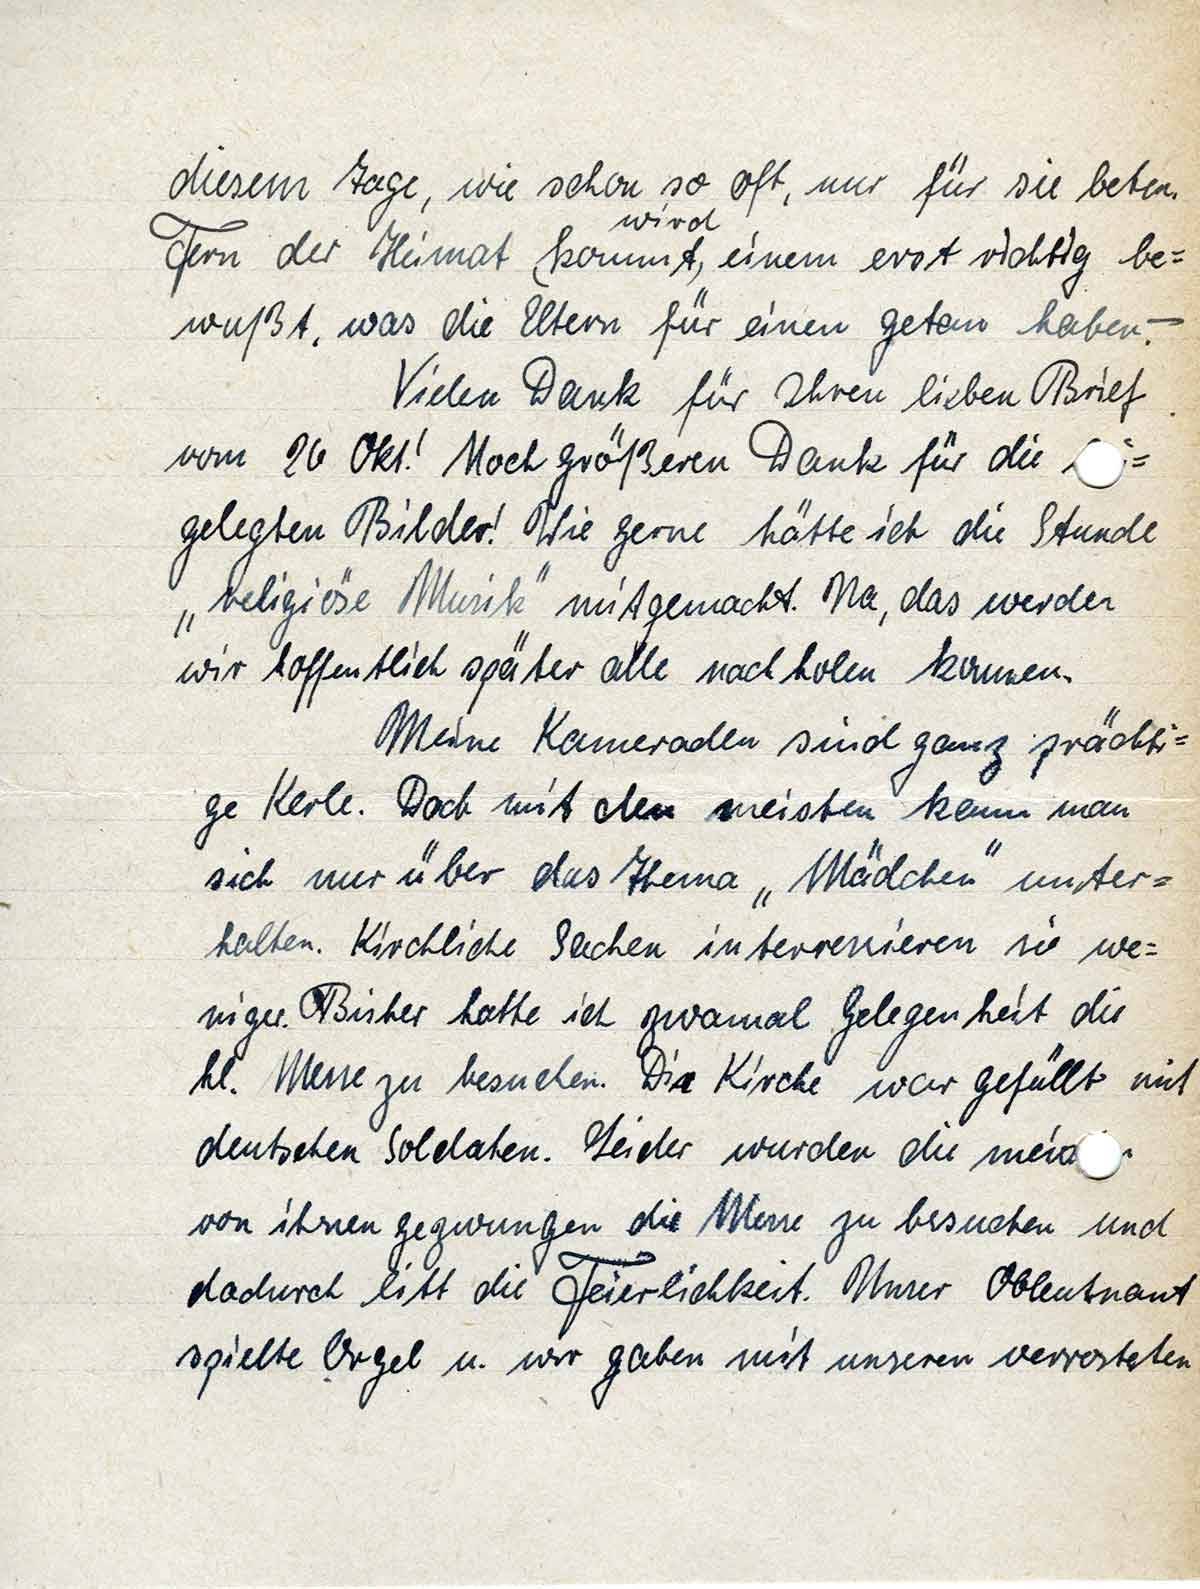 diesem Tage, wie schon so oft, nur für sie beten.
wird
Fern der Heimat (kommt, einem erst richtig be=
wußt, was die Eltern für einen getan haben.—
Vielen Dank für Ihren lieben Brief
vom 26 Okt.! Noch größeren Dank für die
gelegten Bilder! Wie gerne hätte ich die Stunde
„religiöse Musik" mitgemacht. Na, das werden
wir hoffentlich später alle nachholen können.
Meine Kameraden sind ganz prächti=
ge Kerle. Doch mit den meisten kann man
sich nur über das Thema „Mädchen" unter=
halten. Kirchliche Sachen interressieren sie we=
niger. Bisher hatte ich zwamal Gelegenheit die
hl. Messe zu besuchen. Die Kirche war gefüllt mit
deutschen Soldaten. Leider wurden die
von ihnen gezwungen die Messe zu besuchen und
dadurch litt die Feierlichkeit. Unser Obleutnant
spielte Orgel u. wir gaben mit unseren verrosteten